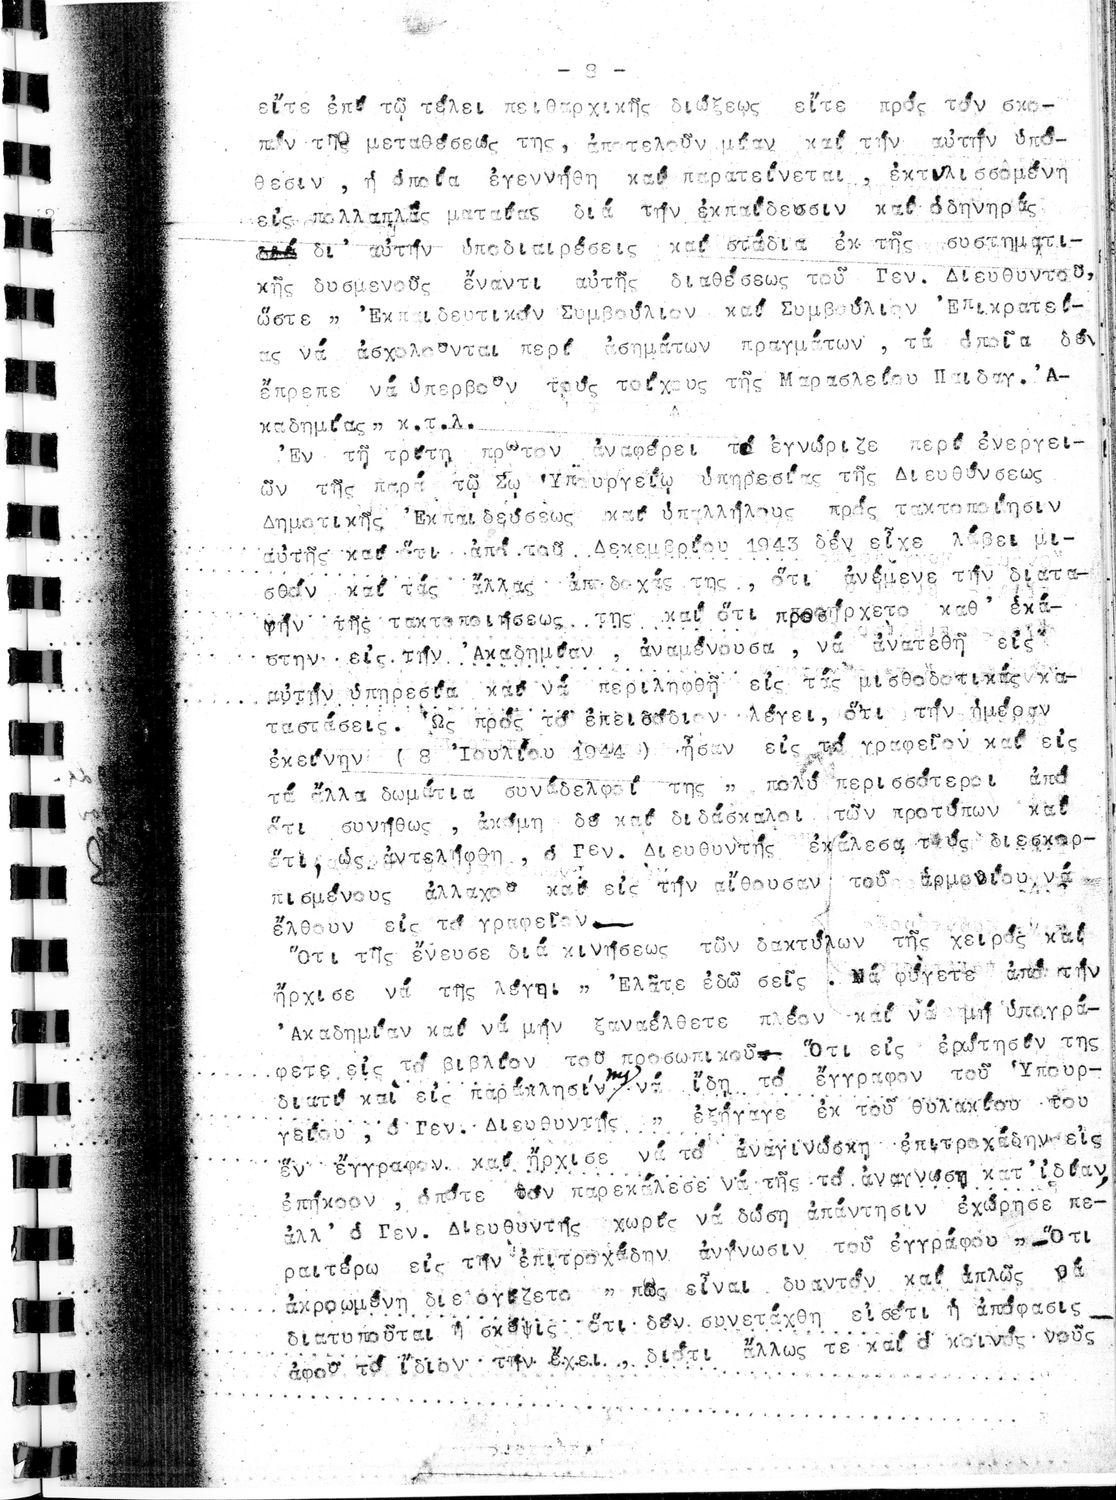 - 8 -
εἴτε ἐπί τῷ τέλει πειθαρχικῆς διώξεως εἴτε πρός τόν σκο-
πόν τῆς μεταθέσεώς της, ἀποτελοῦν μίαν καί τήν αὐτήν ὑπό-
θεσιν , ἡ ὁποία ἐγεννήθη καί παρατείνεται , ἐκτυλισσομένη
εἰς πολλαπλᾶς ματαίας διά τήν ἐκπαίδευσιν καί ὀδυνηράς
δι' αὐτήν ὑποδιαιρέσεις καί στάδια ἐκ τῆς συστηματι-
κῆς δυσμενοῦς ἔναντι αὐτῆς διαθέσεως τοῦ Γεν. Διευθυντοῦ,
ὥστε " Ἐκπαιδευτικόν Συμβούλιον καί Συμβούλιον Ἐπικρατεί-
ας νά ἀσχολοῦνται περί ἀσημάτων πραγμάτων , τά ὁποῖα δέν
ἔπρεπε νά ὑπερβοῦν τούς τοίχους τῆς Μαρασλείου Παιδαγ. Ἀ-
καδημίας" κ.τ.λ.
Ἐν τῇ τρίτῃ πρῶτον ἀναφέρει τά ἐγνώριζε περί ἐνεργει-
ῶν τῆς παρά τῷ Σῳ Ὑπουργείῳ ὑπηρεσίας τῆς Διευθύνσεως
Δημοτικῆς Ἐκπαιδεύσεως καί ὑπαλλήλους πρός τακτοποίησιν
αὐτῆς καί ὅτι ἀπό τοῦ Δεκεμβρίου 1943 δέν εἶχε λάβει μι-
σθόν καί τάς ἄλλας ἀποδοχάς της , ὅτι ἀνέμενε τήν διατα-
γήν τῆς τακτοποιήσεως της καί ὅτι προσήρχετο καθ' ἑκά-
στην εἰς τήν Ἀκαδημίαν , ἀναμένουσα , νά ἀνατεθῇ εἰς
αὐτήν ὑπηρεσία καί νά περιληφθῇ εἰς τάς μισθοδοτικάς κα-
ταστάσεις. Ὡς πρός τό ἐπεισόδιον λέγει, ὅτι τήν ἡμέραν
ἐκείνην ( 8 Ἰουλίου 1944 ) ἦσαν εἰς τό γραφεῖον καί εἰς
τά ἄλλα δωμάτια συνάδελφοί της " πολύ περισσότεροι ἀπό
ὅτι συνήθως , ἀκόμη δέ καί διδάσκαλοι τῶν προτύπων καί
ὅτι, ὡς ἀντελήφθη , ὁ Γεν. Διευθυντής ἐκάλεσε τούς διεσκορ-
πισμένους ἀλλαχοῦ καί εἰς τήν αἴθουσαν τοῦ ἁρμονίου νά
ἔλθουν εἰς τό γραφεῖον —
Ὅτι τῆς ἔνευσε διά κινήσεως τῶν δακτύλων τῆς χειρός καί
ἤρχισε νά τῆς λέγῃ: " Ἐλᾶτε ἐδῶ σεῖς . Νά φύγετε ἀπό τήν
Ἀκαδημίαν καί νά μήν ξαναέλθετε πλέον καί νά μή ὑπογρά-
φετε εἰς τό βιβλίον τοῦ προσωπικοῦ — Ὅτι εἰς ἐρώτησίν της
διατί καί εἰς παράκλησίν της νά ἴδῃ τό ἔγγραφον τοῦ Ὑπουρ-
γείου , ὁ Γεν. Διευθυντής " ἐξήγαγε ἐκ τοῦ θυλακίου του
ἕν ἔγγραφον καί ἤρχισε νά τό ἀναγινώσκῃ ἐπιτροχάδην εἰς
ἐπήκοον , ὁπότε τόν παρεκάλεσε νά τῆς τό ἀναγνώσῃ κατ' ἰδίαν,
ἀλλ' ὁ Γεν. Διευθυντής χωρίς νά δώσῃ ἀπάντησιν ἐχώρησε πε-
ραιτέρω εἰς τήν ἐπιτροχάδην ἀνάγνωσιν τοῦ ἐγγράφου " — Ὅτι
ἀκροωμένη διελογίζετο " πῶς εἶναι δυατόν καί ἁπλῶς νά
διατυποῦται ἡ σκέψις ὅτι δέν συνετάχθη εἰσέτι ἡ ἀπόφασις —
ἀφοῦ τό ἴδιον τήν ἔχει , διότι ἄλλως τε καί ὁ κοινός νοῦς